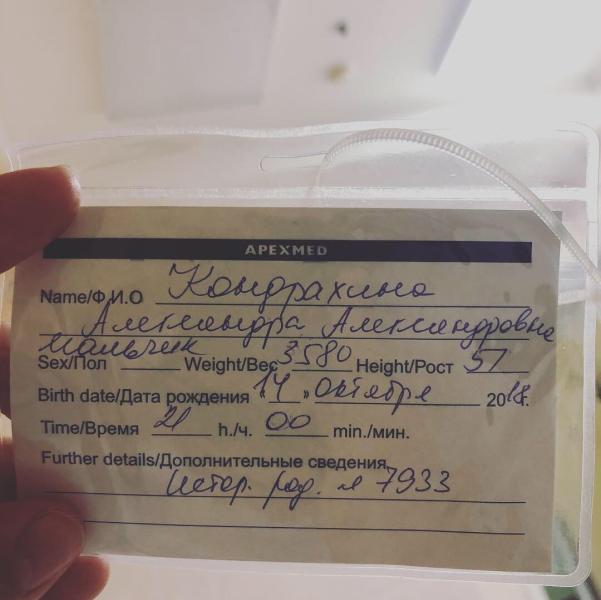 APEXMED
Name/Ф.И.О Кондрахина
Александра Александровна
мальчик
Sex/Пол Weight/Вес 3580 Height/Рост 57
Birth date/Дата рождения "14" октября 2018г.
Time/Время 21 h./ч. 00 min./мин.
Further details/Дополнительные сведения
Истор. род. № 7933